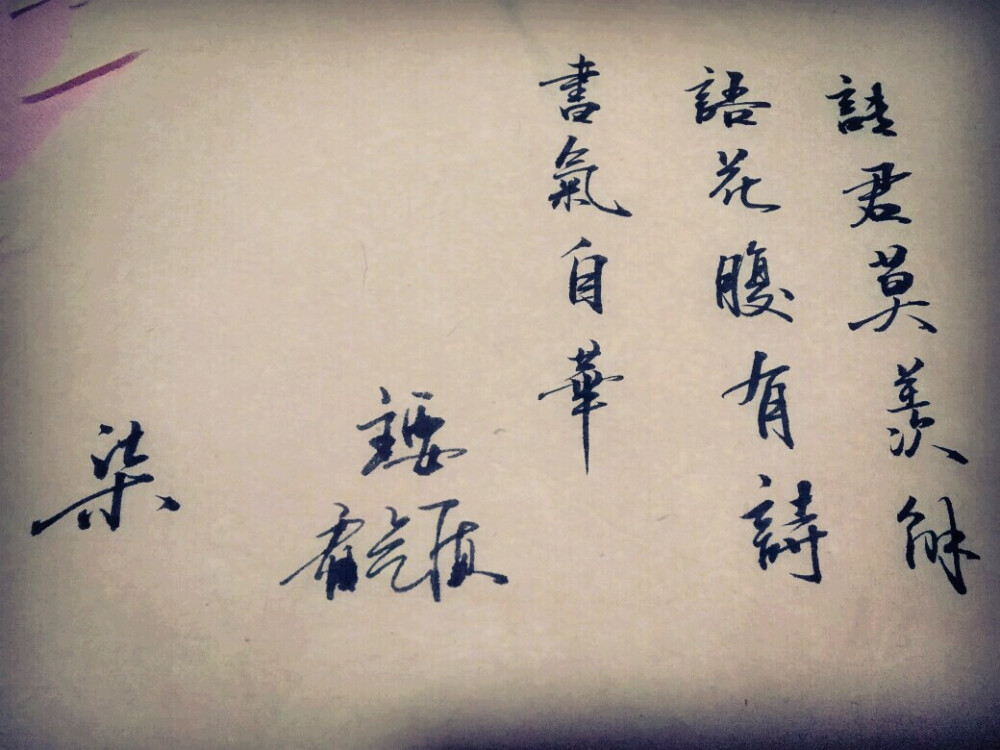 請君莫羨解
語花腹有詩
書氣自華
柒